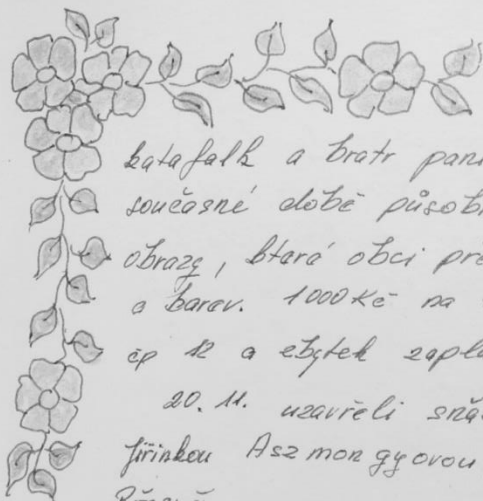 katafalk a bratr pan
současné době působ
obrazy, která obci pr
a barev. 1000 Kč na
čp 12 a zbytek zapla
20. 11. uzavřeli sňa
Jiřinkou Aszmongyovou